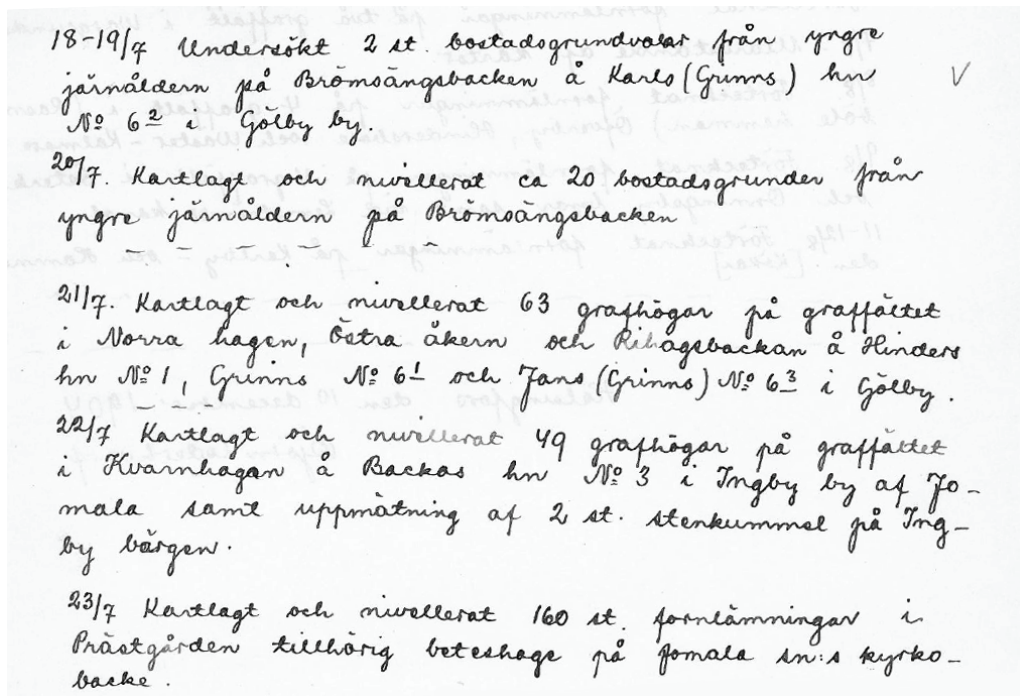 18-19/7 Undersökt 2 st. bostadsgrundvalar från yngre
järnåldern på Brömsängsbacken å Karls (Grinns) hn
№ 6² i Gölby by.
20/7. Kartlagt och nivellerat ca 20 bostadsgrunder från
yngre järnåldern på Brömsängsbacken
21/7. Kartlagt och nivellerat 63 grafhögar på graffältet
i Norra hagen, Östra åkern och Rihagsbackan å Hinders
hn № 1, Grinns № 6¹ och Jans (Grinns) № 6³ i Gölby.
22/7 Kartlagt och nivellerat 49 grafhögar på graffältet
i Kvarnhagan å Backas hn № 3 i Ingby by af Jo-
mala samt uppmätning af 2 st. stenkummel på Ing-
by bärgen.
23/7 Kartlagt och nivellerat 160 st. fornlämningar i
Prästgården tillhörig beteshage på Jomala sn:s kyrko-
backe.